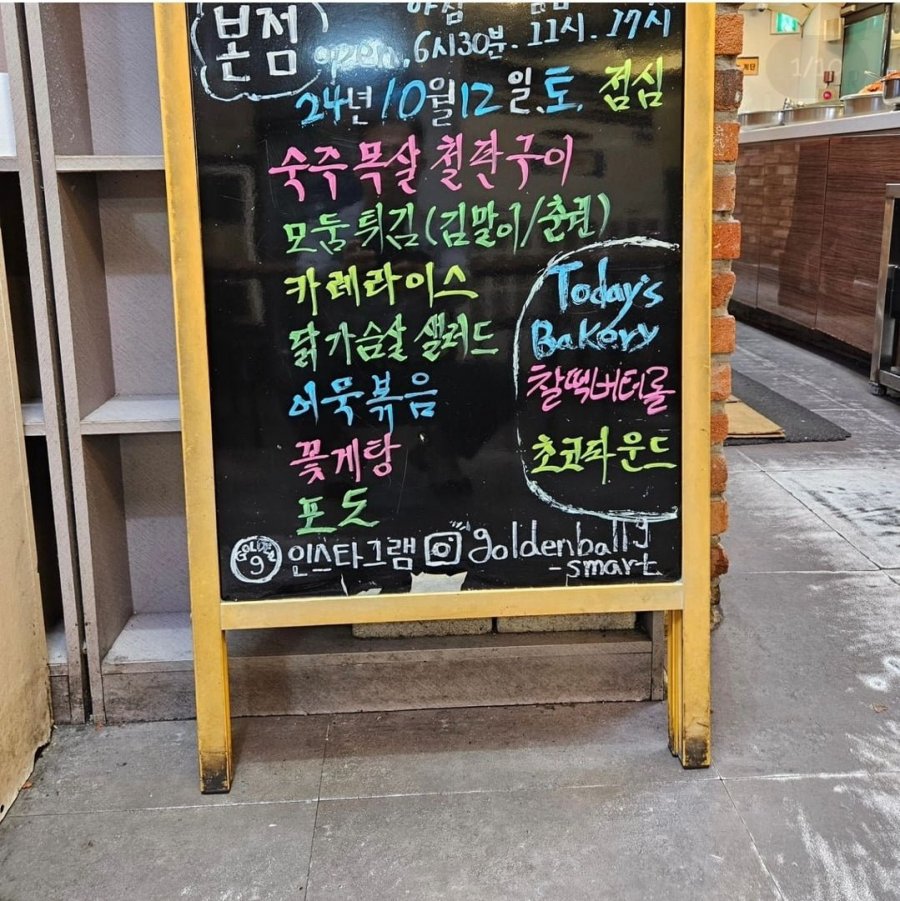 본점
open. 6시30분. 11시. 17시
24년 10월 12일.토. 점심
숙주 목살 철판구이
모둠튀김(김말이/춘권)
카레라이스
닭가슴살 샐러드
어묵볶음
꽃게탕
포도
Today's
Bakery
찰떡버터롤
초코파운드
인스타그램 goldenball9
-smart